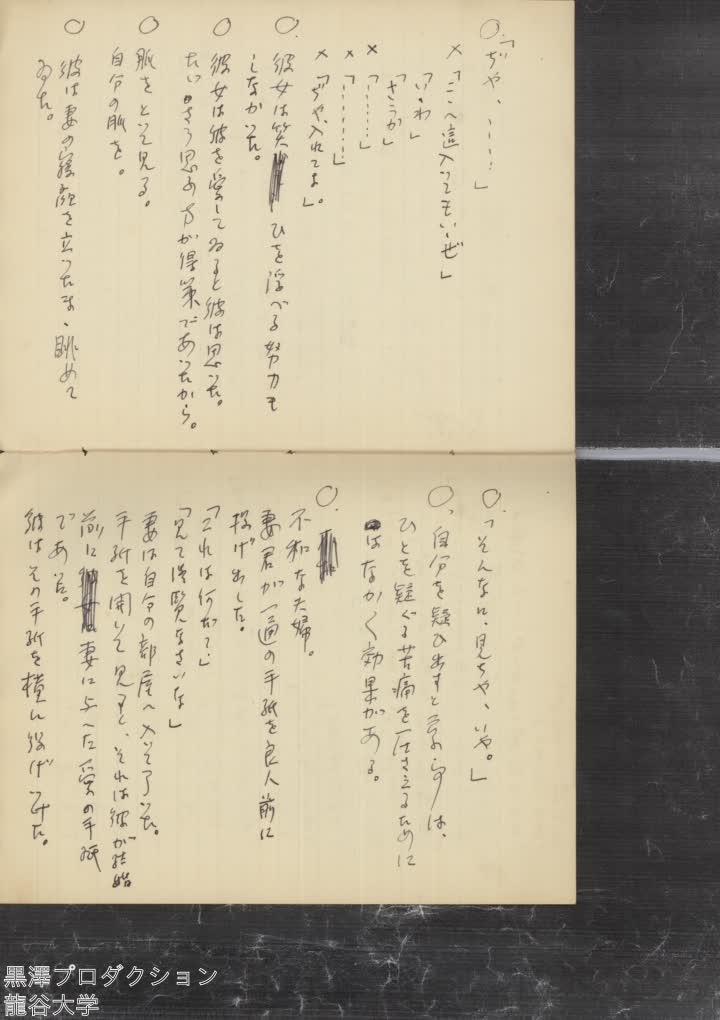 ○「ぢや、……」
×「こゝへ這入つてもいゝぜ」
「いゝわ」
「さうか」
×「……」
×「……」
×「ぢや、入れてよ」。
○彼女は笑ひを浮べる努力も
しなかつた。
○彼女は彼を愛してゐると彼は思つた。
さう思ふ方が得策であつたから。
○脈をとつて見る。
自分の脈を。
○彼は妻の寝顔を立つたまゝ眺めて
ゐた。
○「そんなに、見ちや、いや。」
○自分を疑ひ出すと
ひとを疑ぐる苦痛を圧さえるために
はなかなか効果がある。
○
不和な夫婦。
妻君が一通の手紙を良人の前に
投げ出した。
「これは何だ?」
「見て御覧なさいな」
妻は自分の部屋へ入つて了つた。
手紙を開いて見ると、それは彼が結婚
前に妻に与へた愛の手紙
であつた。
彼はその手紙を横に投げ